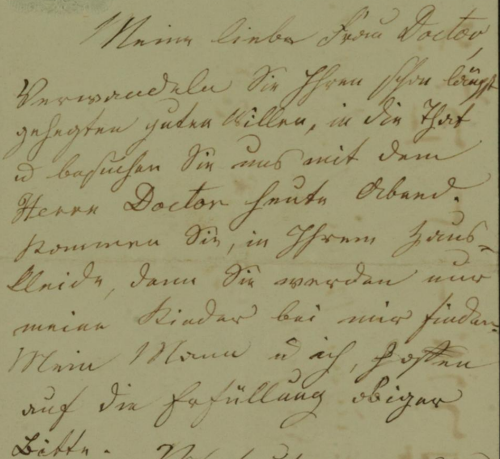 Meine liebe Frau Doctor,
Verwandeln Sie Ihren schon längst
gehegten guten Willen, in die That
u besuchen Sie uns mit dem
Herrn Doctor heute Abend.
Kommen Sie, in Ihrem Haus-
kleide, denn Sie werden nur
meine Kinder bei mir finden.
Mein Mann u ich, hoffen
auf die Erfüllung obiger
Bitte.